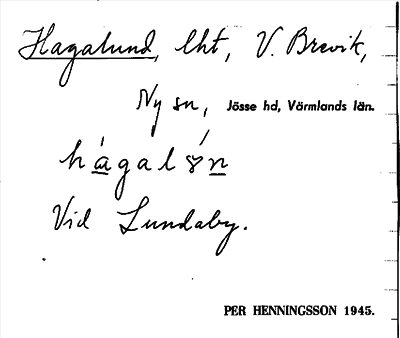 Hagalund, lht, V. Brevik,
Ny sn, Jösse hd, Värmlands län.
Vid Lundaby.
PER HENNINGSSON 1945.